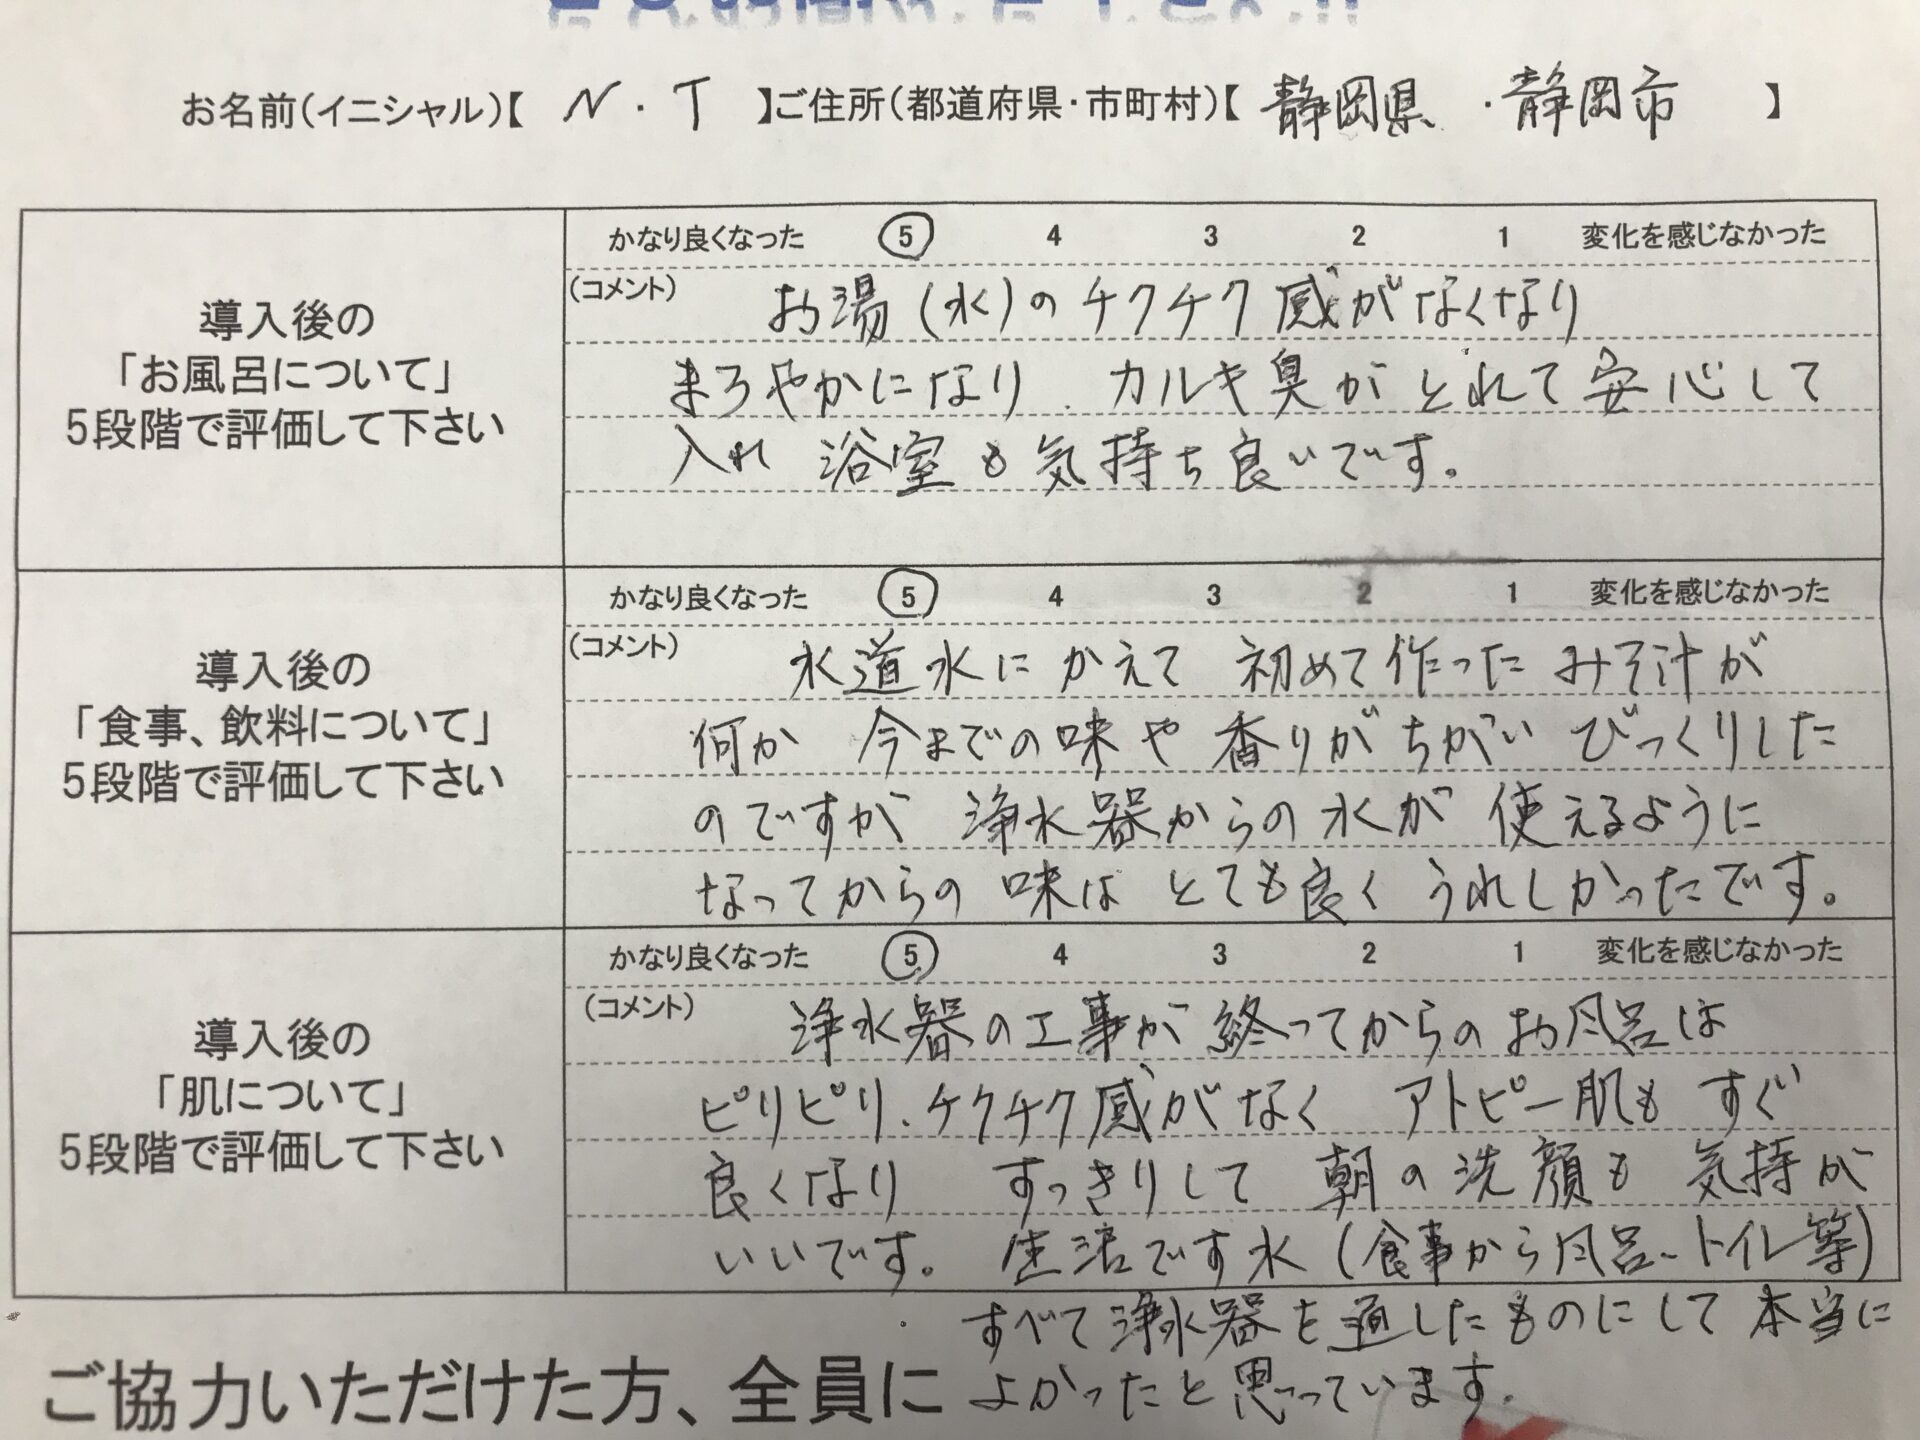 お名前(イニシャル)【 N・T 】ご住所(都道府県・市町村)【 静岡県・静岡市 】
導入後の
「お風呂について」
5段階で評価して下さい
かなり良くなった 5 4 3 2 1 変化を感じなかった
(コメント) お湯(水)のチクチク感がなくなり
まろやかになり、カルキ臭がとれて安心して
入れ 浴室も気持ち良いです。
導入後の
「食事、飲料について」
5段階で評価して下さい
かなり良くなった 5 4 3 2 1 変化を感じなかった
(コメント) 水道水にかえて 初めて作ったみそ汁が
何か 今までの味や香りがちがい びっくりした
のですが 浄水器からの水が 使えるように
なってからの 味は とても良く うれしかったです。
導入後の
「肌について」
5段階で評価して下さい
かなり良くなった 5 4 3 2 1 変化を感じなかった
(コメント) 浄水器の工事が終ってからのお風呂は
ピリピリ、チクチク感がなく アトピー肌も すぐ
良くなり すっきりして 朝の洗顔も 気持が
いいです。 生活です水(食事から風呂、トイレ等)
すべて浄水器を通したものにして本当に
よかったと思っています。
ご協力いただけた方、全員に